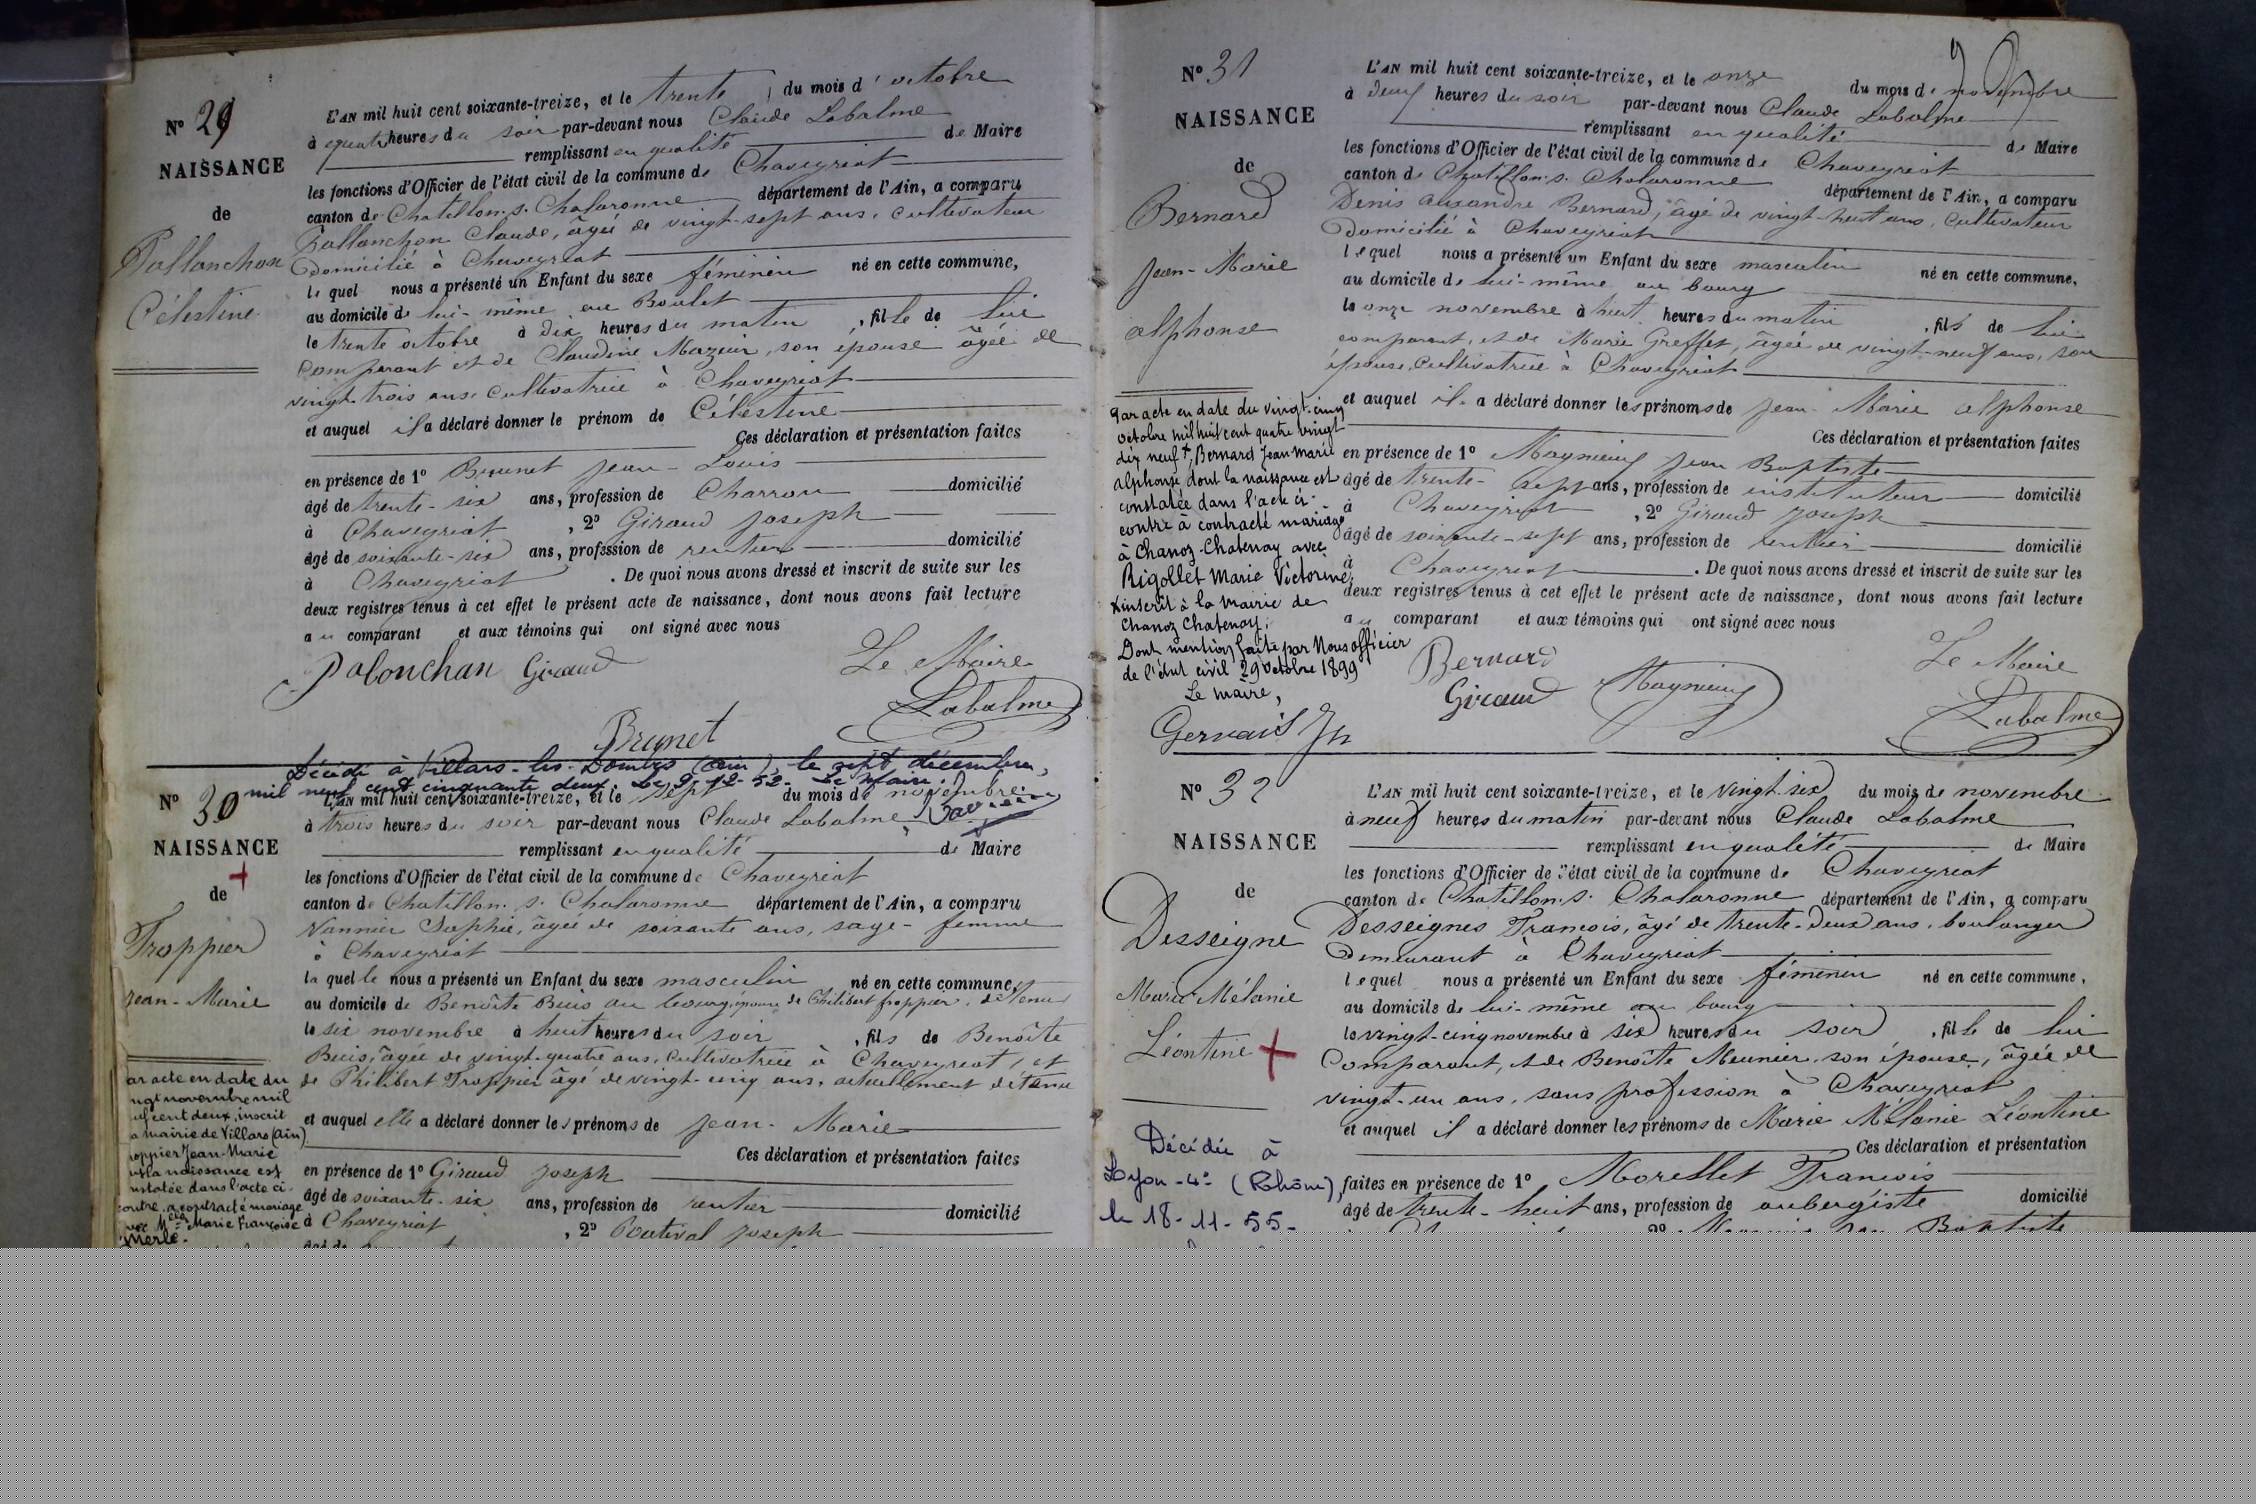 Nº 29
NAISSANCE
de
Pallanchon
Célestine
L'AN mil huit cent soixante-treize, et le trente du mois d'octobre
à quatre heures du soir par-devant nous Claude Labalme
remplissant en qualité de Maire
les fonctions d'Officier de l'état civil de la commune de Chaveyriat
canton de Chatillon. s. Chalaronne département de l'Ain, a comparu
Pallanchon Claude, âgé de vingt-sept ans, cultivateur
Domicilié à Chaveyriat
lequel nous a présenté un Enfant du sexe féminin né en cette commune,
au domicile de lui-même, au Boulet
le trente octobre à dix heures du matin, fille de lui
comparant et de Claudine Mazuir, son épouse âgée de
vingt-trois ans, cultivatrice à Chaveyriat
et auquel il a déclaré donner le prénom de Célestine
Ces déclaration et présentation faites
en présence de 1º Brunet Jean-Louis
âgé de trente-six ans, profession de Charron domicilié
à Chaveyriat, 2º Giraud Joseph
âgé de soixante-six ans, profession de rentier domicilié
à Chaveyriat. De quoi nous avons dressé et inscrit de suite sur les
deux registres tenus à cet effet le présent acte de naissance, dont nous avons fait lecture
au comparant et aux témoins qui ont signé avec nous
Palonchan Giraud Le Maire
Labalme
Brunet
Décédé à Villars-les-Dombes (Ain), le sept décembre,
mil neuf cent cinquante deux. Le 9-12-52. Le Maire.
Nº 30
NAISSANCE
de
Troppier
Jean-Marie
L'AN mil huit cent soixante-treize, et le sept du mois de novembre
à trois heures du soir par-devant nous Claude Labalme,
remplissant en qualité de Maire
les fonctions d'Officier de l'état civil de la commune de Chaveyriat
canton de Chatillon. s. Chalaronne département de l'Ain, a comparu
Vannier Sophie, âgée de soixante ans, sage-femme
à Chaveyriat
laquelle nous a présenté un Enfant du sexe masculin né en cette commune,
au domicile de Benoîte Buis au bourg, épouse de Philibert Troppier, détenu
le six novembre à huit heures du soir, fils de Benoîte
Buis, âgée de vingt-quatre ans, cultivatrice à Chaveyriat, et
de Philibert Troppier âgé de vingt-cinq ans, actuellement détenu
et auquel elle a déclaré donner les prénoms de Jean-Marie
Ces déclaration et présentation faites
en présence de 1º Giraud Joseph
âgé de soixante-six ans, profession de rentier domicilié
à Chaveyriat, 2º Boutival Joseph
ar acte en date du
ngt novembre mil
uf cent deux, inscrit
a mairie de Villars (Ain)
oppier Jean-Marie
nt la naissance est
nstatée dans l'acte ci-
contre, a contracté mariage
avec Melle Marie Françoise
Merle.
Nº 31
NAISSANCE
de
Bernard
Jean-Marie
Alphonse
L'AN mil huit cent soixante-treize, et le onze du mois de novembre
à deux heures du soir par-devant nous Claude Labalme
remplissant en qualité de Maire
les fonctions d'Officier de l'état civil de la commune de Chaveyriat
canton de Chatillon. s. Chalaronne département de l'Ain, a comparu
Denis Alexandre Bernard, âgé de vingt-huit ans, cultivateur
Domicilié à Chaveyriat
lequel nous a présenté un Enfant du sexe masculin né en cette commune,
au domicile de lui-même au bourg
le onze novembre à huit heures du matin, fils de lui
comparant, et de Marie Greffet, âgée de vingt-neuf ans, son
épouse, cultivatrice à Chaveyriat
et auquel il a déclaré donner les prénoms de Jean-Marie Alphonse
Ces déclaration et présentation faites
en présence de 1º Jean Baptiste
âgé de trente-sept ans, profession de instituteur domicilié
à Chaveyriat, 2º Giraud Joseph
âgé de soixante-sept ans, profession de rentier domicilié
à Chaveyriat. De quoi nous avons dressé et inscrit de suite sur les
deux registres tenus à cet effet le présent acte de naissance, dont nous avons fait lecture
au comparant et aux témoins qui ont signé avec nous
Bernard Le Maire
Giraud Labalme
Par acte en date du vingt-cinq
octobre mil huit cent quatre vingt
dix neuf +, Bernard Jean Marie
Alphonse dont la naissance est
constatée dans l'acte ci-
contre à contracté mariage
à Chanoz-Chatenay avec
Rigollet Marie Victorine,
+ inscrit à la mairie de
Chanoz Chatenay.
Dont mention faite par Nous officier
de l'état civil 29 octobre 1899
Le maire,
Gervais
Nº 32
NAISSANCE
de
Desseigne
Marie Mélanie
Léontine
L'AN mil huit cent soixante-treize, et le vingt-six du mois de novembre
à neuf heures du matin par-devant nous Claude Labalme
remplissant en qualité de Maire
les fonctions d'Officier de l'état civil de la commune de Chaveyriat
canton de Chatillon. s. Chalaronne département de l'Ain, a comparu
Desseignes François, âgé de trente-deux ans, boulanger
Demeurant à Chaveyriat
lequel nous a présenté un Enfant du sexe féminin né en cette commune,
au domicile de lui-même au bourg
le vingt-cinq novembre à six heures du soir, fille de lui
Comparant, et de Benoîte Meunier, son épouse, âgée de
vingt-un ans, sans profession à Chaveyriat
et auquel il a déclaré donner les prénoms de Marie Mélanie Léontine
Ces déclaration et présentation
faites en présence de 1º Morellet François
âgé de trente-huit ans, profession de aubergiste domicilié
2º Jean Baptiste
Décédée à
Lyon-4e (Rhône),
le 18-11-55-